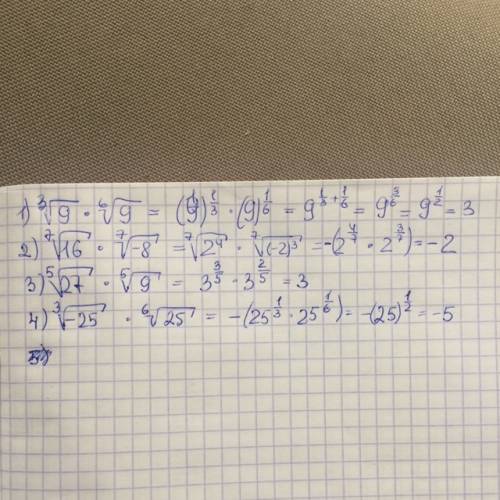 1) ∛9 · ⁶√9 = (9)^{1/3} · (9)^{1/6} = 9^{1/3 + 1/6} = 9^{3/6} = 9^{1/2} = 3
2) ⁷√16 · ⁷√-8 = ⁷√2⁴ · ⁷√(-2)³ = -(2^{4/7} · 2^{3/7}) = -2
3) ⁵√27 · ⁵√9 = 3^{3/5} · 3^{2/5} = 3
4) ∛-25 · ⁶√25 = -(25^{1/3} · 25^{1/6}) = -(25)^{1/2} = -5